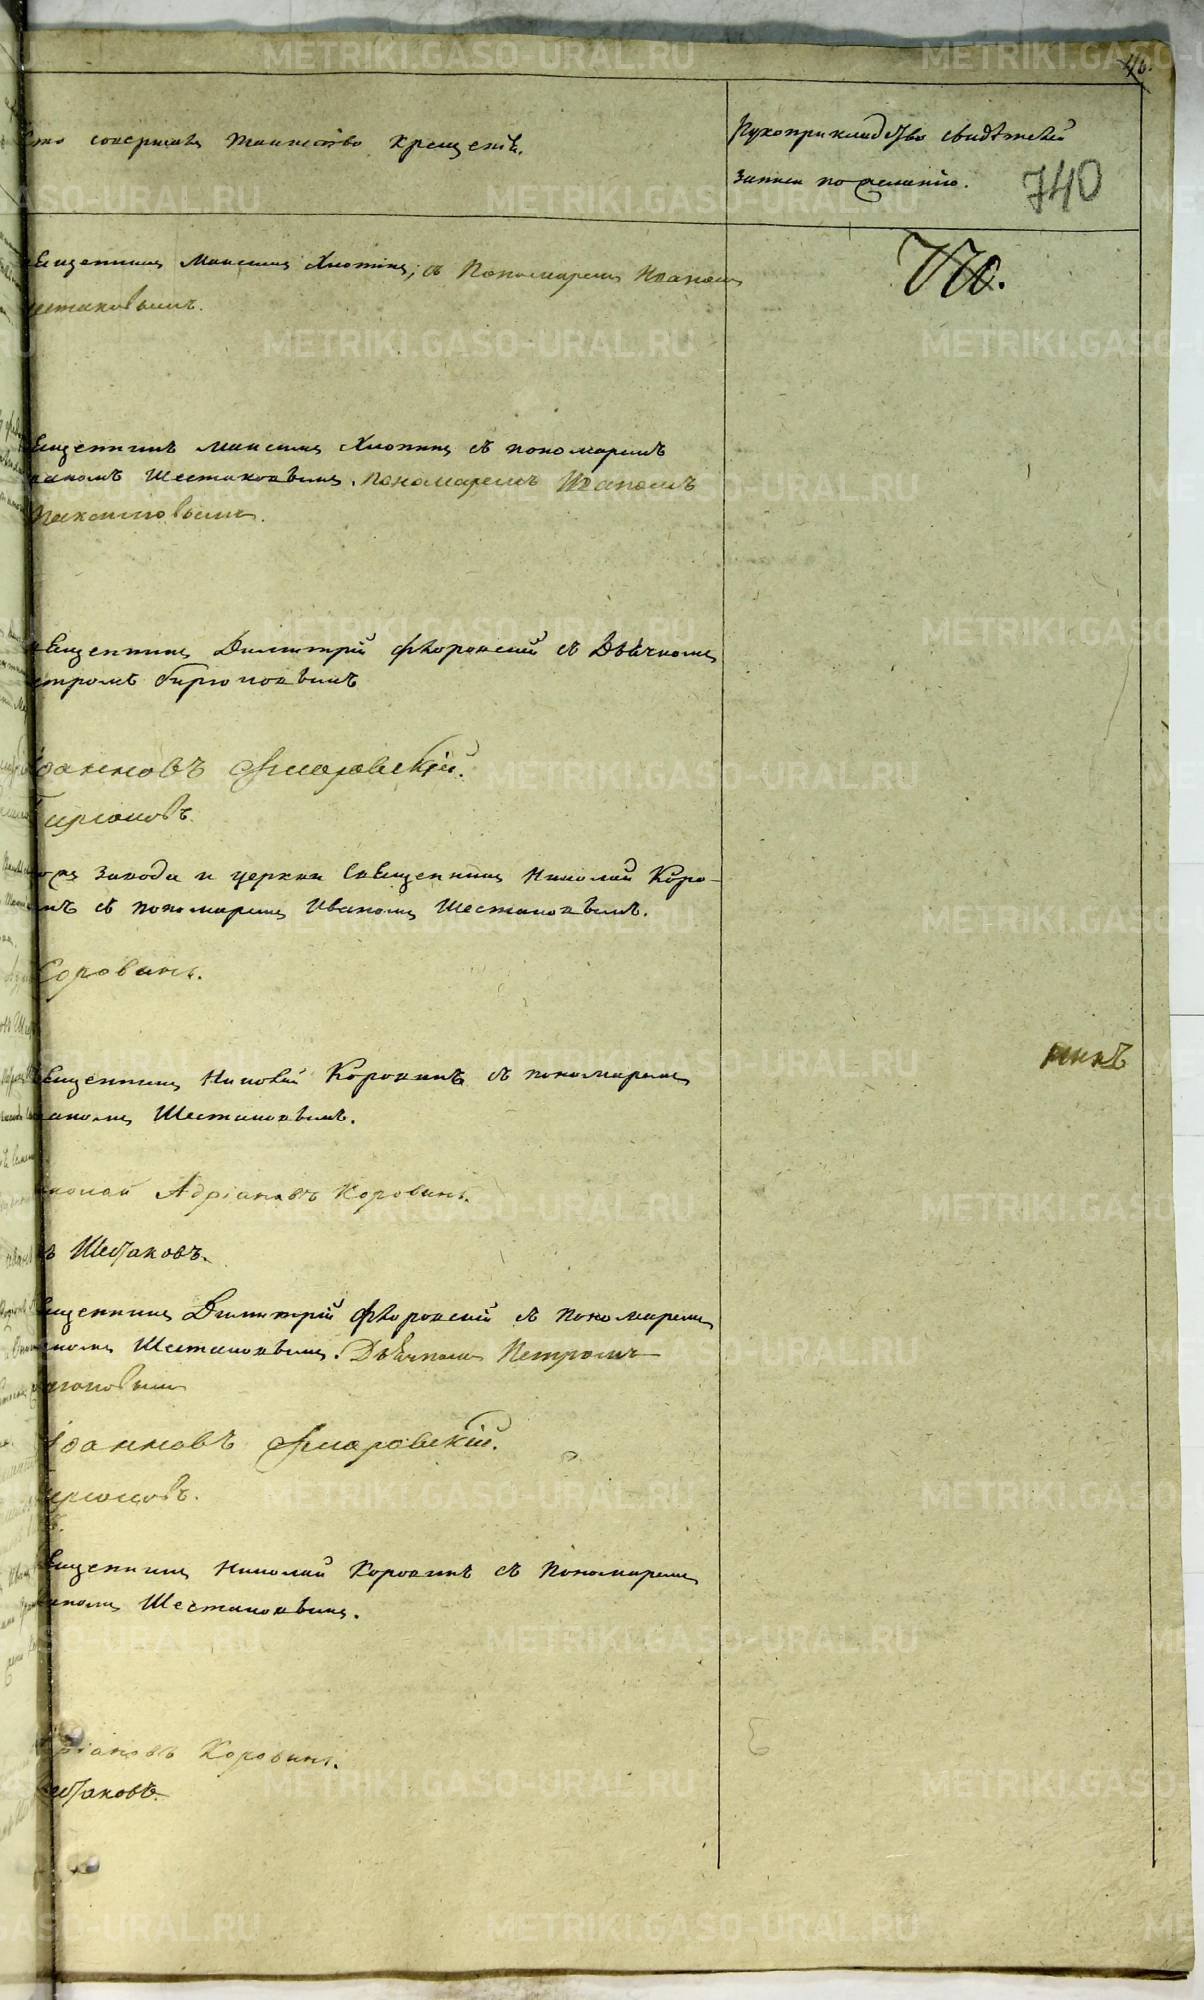 46.
Кто совершалъ таинство крещенія.
Рукоприкладство свидѣтелей
записи по желанію.
740
священникъ Максимъ Хлопинъ, съ Пономаремъ Иваномъ
Шестаковымъ.
священникъ Максимъ Хлопинъ съ пономаремъ
Иваномъ Шестаковымъ. Пономаремъ Иваномъ
священникъ Димитрій Флоровскій съ Дьячкомъ
Петромъ Бирюковымъ
Іоанновъ Флоровскій.
Бирюковъ.
завода и церкви Священникъ Николай Коро-
винъ съ пономаремъ Иваномъ Шестаковымъ.
Коровинъ.
священникъ Николай Коровинъ съ пономаремъ
Иваномъ Шестаковымъ.
Николай Адріановъ Коровинъ.
Шестаковъ.
священникъ Димитрій Флоровскій съ пономаремъ
Иваномъ Шестаковымъ. Дьячкомъ Петромъ
Бирюковымъ
Іоанновъ Флоровскій.
Бирюковъ.
священникъ Николай Коровинъ съ Пономаремъ
Иваномъ Шестаковымъ.
Адріановъ Коровинъ.
Шестаковъ.
METRIKI.GASO-URAL.RU